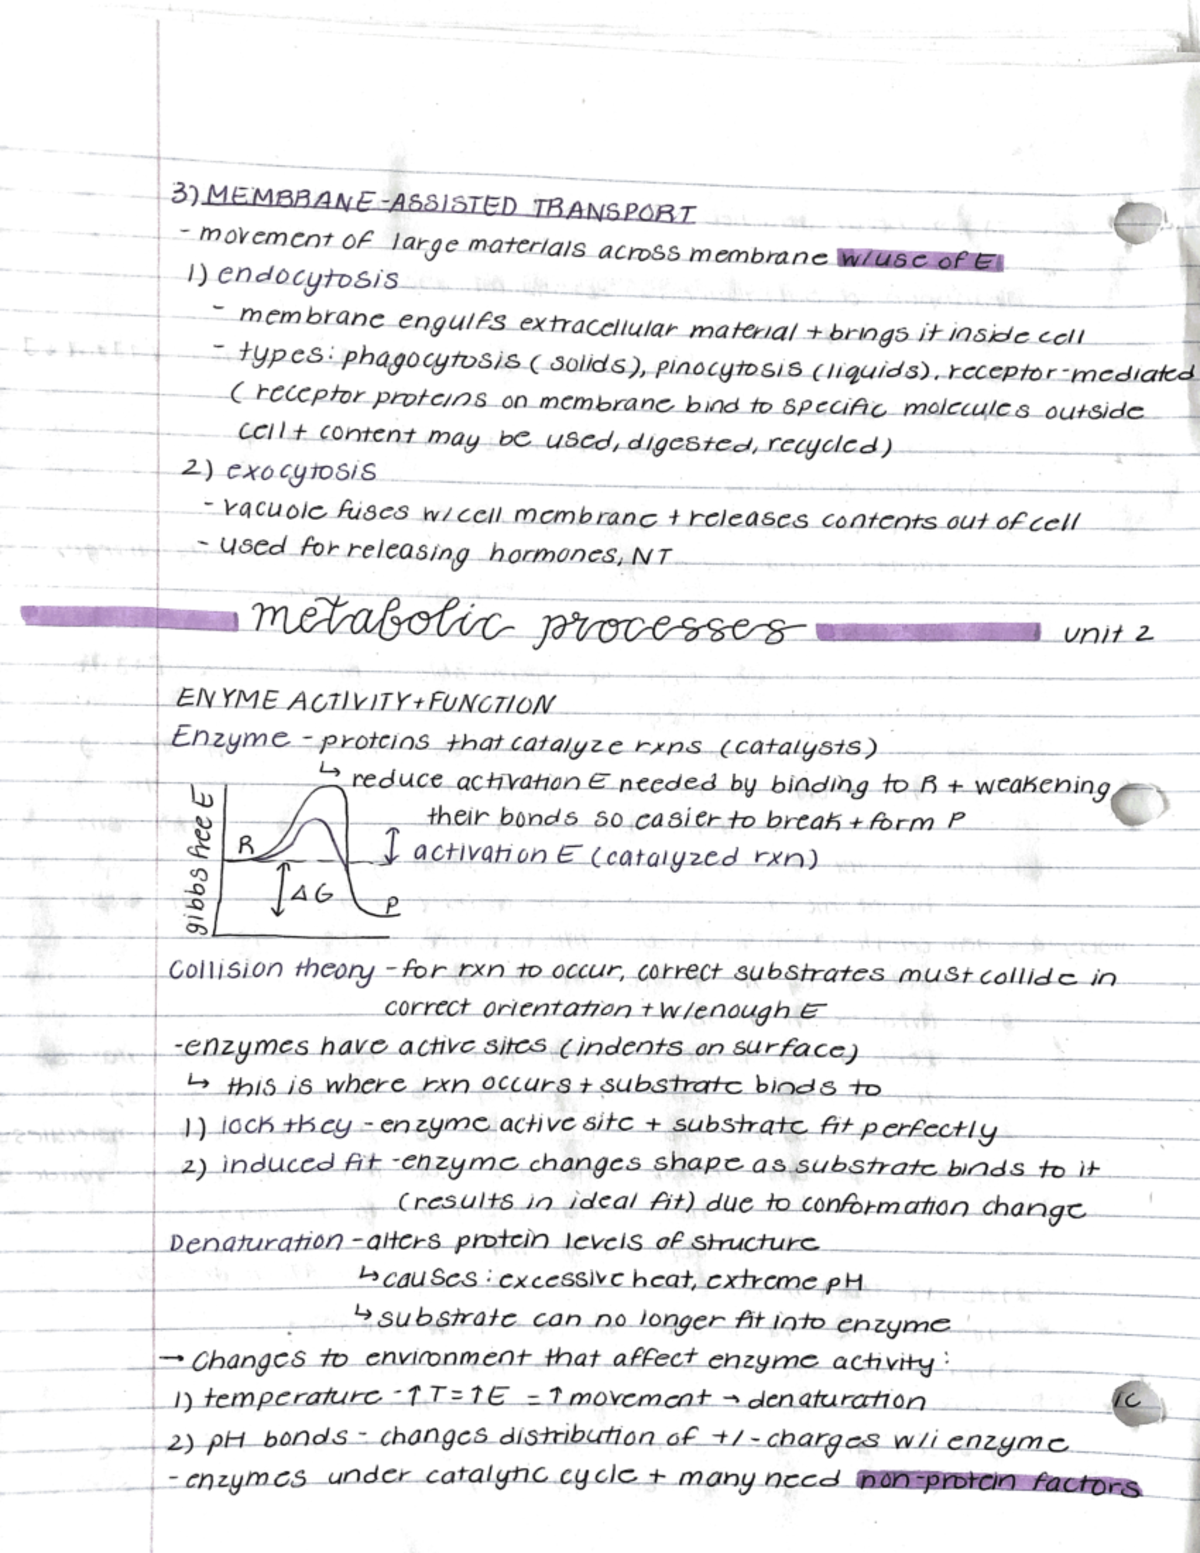 3) MEMBRANE-ASSISTED TRANSPORT
- movement of large materials across membrane w/use of E
1) endocytosis
- membrane engulfs extracellular material + brings it inside cell
- types: phagocytosis (solids), pinocytosis (liquids), receptor-mediated
(receptor proteins on membrane bind to specific molecules outside
cell + content may be used, digested, recycled)
2) exocytosis
- vacuole fuses w/cell membrane + releases contents out of cell
- used for releasing hormones, NT
metabolic processes unit 2
ENYME ACTIVITY + FUNCTION
Enzyme - proteins that catalyze rxns (catalysts)
↳ reduce activation E needed by binding to R + weakening
their bonds so easier to break + form P
↕ activation E (catalyzed rxn)
gibbs free E
R
↕ΔG
P
Collision theory - for rxn to occur, correct substrates must collide in
correct orientation + w/enough E
- enzymes have active sites (indents on surface)
↳ this is where rxn occurs + substrate binds to
1) lock + key - enzyme active site + substrate fit perfectly
2) induced fit - enzyme changes shape as substrate binds to it
(results in ideal fit) due to conformation change
Denaturation - alters protein levels of structure
↳ causes: excessive heat, extreme pH
↳ substrate can no longer fit into enzyme
→ Changes to environment that affect enzyme activity:
1) temperature - ↑T = ↑E = ↑ movement → denaturation
2) pH bonds - changes distribution of +/- charges w/i enzyme
- enzymes under catalytic cycle + many need non-protein factors